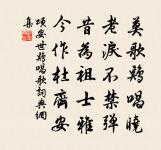 莫歌鷄唱曉
老淚不禁彈
昔為祖士雅
今作杜齊安
項安世鷄唱歌詞典網
集